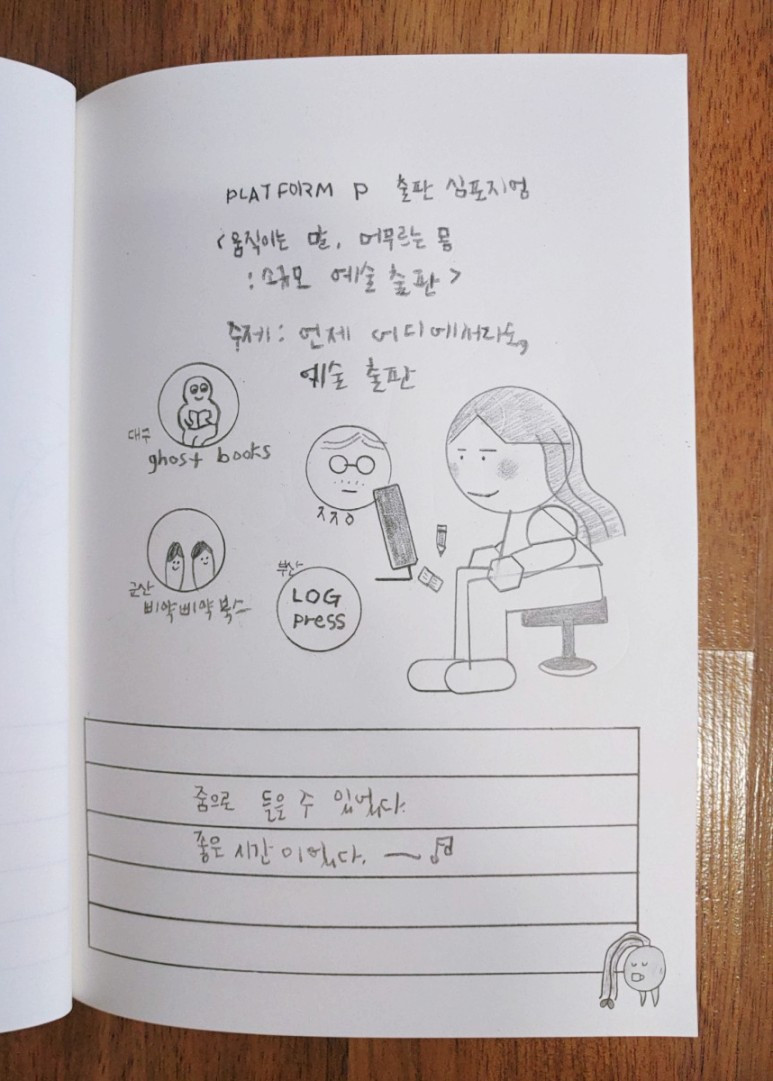 PLATFORM P 출판 심포지엄
<움직이는 말, 머무르는 몸
: 소규모 예술 출판>
주제: 언제 어디에서라도,
예술 출판
대구
ghost books
ㅈㅈㅇ
군산
삐약삐약북스
부산
LOG
press
줌으로 들을 수 있었다.
좋은 시간이었다.